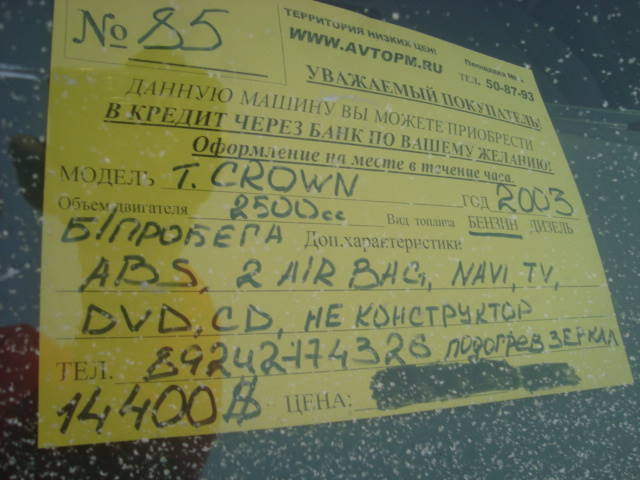 № 85
ТЕРРИТОРИЯ НИЗКИХ ЦЕН!
WWW.AVTOPM.RU
Площадка №
ТЕЛ. 50-87-93
УВАЖАЕМЫЙ ПОКУПАТЕЛЬ!
ДАННУЮ МАШИНУ ВЫ МОЖЕТЕ ПРИОБРЕСТИ
В КРЕДИТ ЧЕРЕЗ БАНК ПО ВАШЕМУ ЖЕЛАНИЮ!
Оформление на месте в течение часа.
МОДЕЛЬ T. CROWN ГОД 2003
Объем двигателя 2500cc Вид топлива БЕНЗИН ДИЗЕЛЬ
Б/ПРОБЕГА Доп.характеристики
ABS, 2 AIR BAG, NAVI, TV,
DVD, CD, НЕ КОНСТРУКТОР
ТЕЛ. 89242774326 подогрев ЗЕРКАЛ
14400$ ЦЕНА: